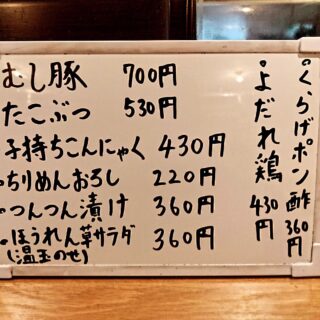 むし豚 700円
たこぶつ 530円
子持ちこんにゃく 430円
・ちりめんおろし 220円
・つんつん漬け 360円
・ほうれん草サラダ 360円
(温玉のせ)
・くらげポン酢 360円
・よだれ鶏 430円